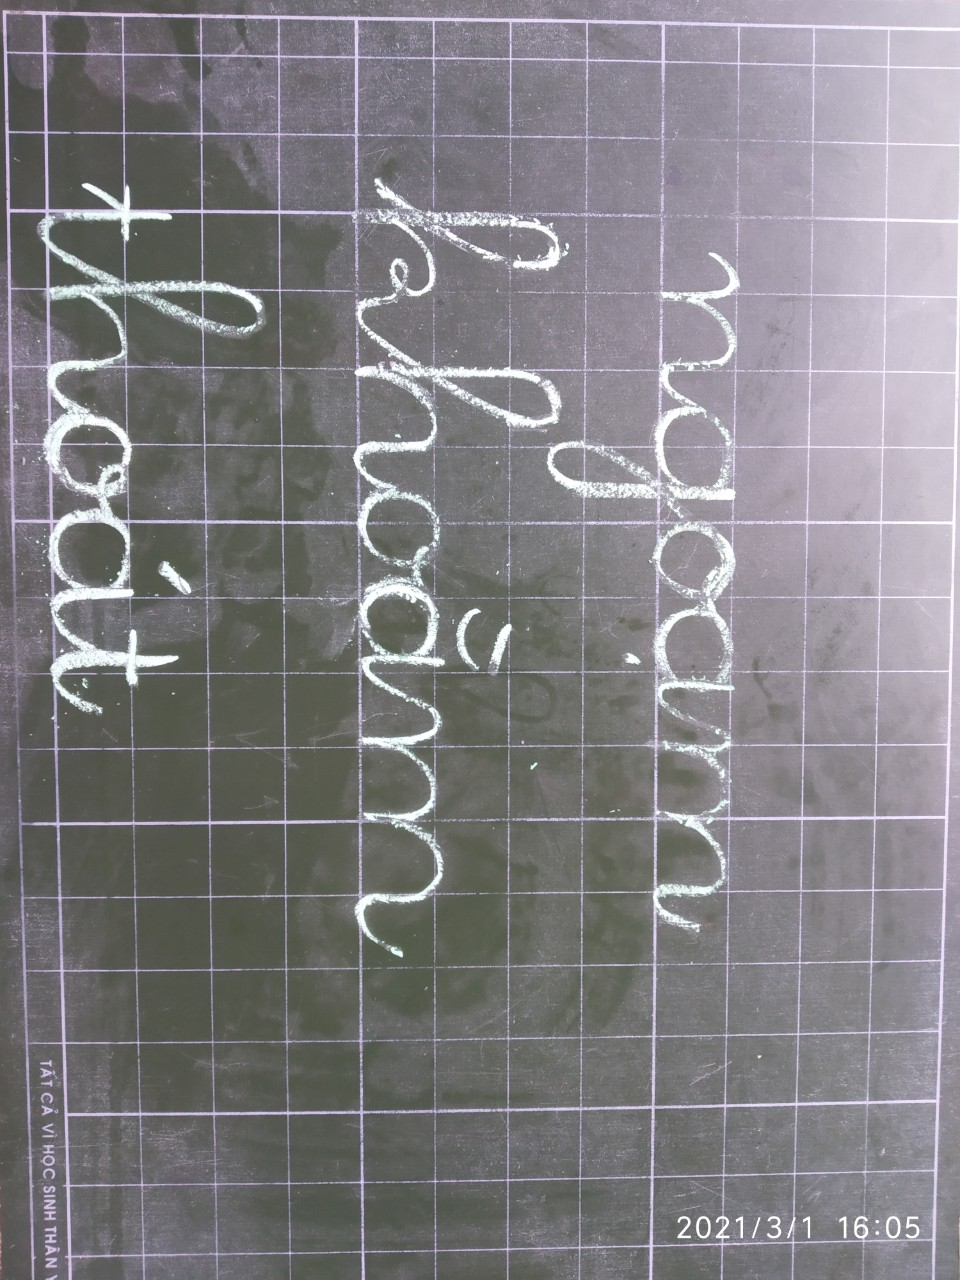 ngoạm
khoằm
thoát
TẤT CẢ VÌ HỌC SINH THÂN
2021/3/1 16:05